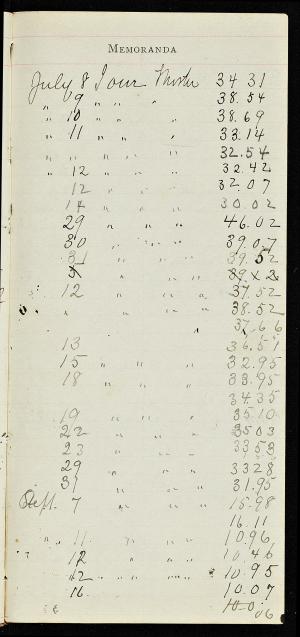 MEMORANDA
July 8 I our Mister 34 31
" 9 " " " 38.54
" 10 " " " 38.69
" 11 " " " 33.14
" " " " " 32.54
" 12 " " " 32.42
12 " " 32.07
14 " " " 30.02
29 " " " 46.02
30 " " " 39.07
31 " " " 39.52
12 " " " 37.52
" " " " 38.52
" 37.66
13 36.51
15 " " " 32.95
18 " " " 33.95
34.35
19 " " " 35 10
22 " " " 35 03
23 " " " 33 53
29 " " " 33 28
31 " " " 31.95
Sept. 7 " " " 15.98
16.11
" 11 " " " 10.96
12 " " " 10 46
12 " " " 10.95
16 10.07
10.06